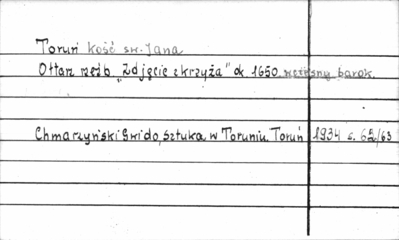 Toruń kość św. Jana
Ołtarz rzeźb. „Zdjęcie z krzyża" ok 1650 wczesny barok.
Chmarzyński Gwido, Sztuka w Toruniu. Toruń 1934 s. 62/63